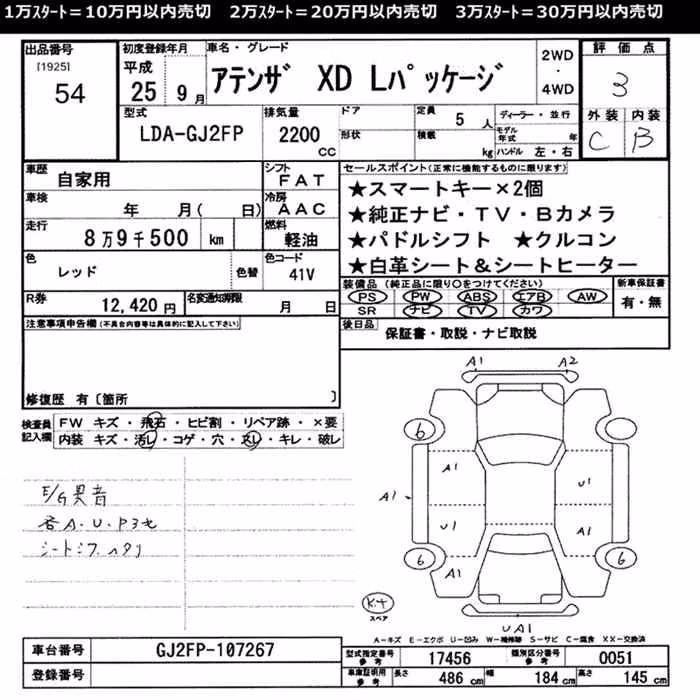 1万ｽﾀｰﾄ＝10万円以内売切　2万ｽﾀｰﾄ＝20万円以内売切　3万ｽﾀｰﾄ＝30万円以内売切
出品番号
[1925]
54
初度登録年月
平成
25 9月
車名・グレード
アテンザ XD Lパッケージ
2WD
・
4WD
評価点
3
外装 内装
C B
型式
LDA-GJ2FP
排気量
2200
CC
ドア
形状
定員
5 人
積載
kg
ディーラー・並行
モデル年式 年
ハンドル 左・右
車歴
自家用
シフト
FAT
車検
年 月( 日)
冷房
AAC
走行
8万9千500 km
燃料
軽油
色
レッド
色替
色コード
41V
R券
12,420 円
名変通知期限
月 日
セールスポイント(正常に機能するものに限ります)
★スマートキー×2個
★純正ナビ・TV・Bカメラ
★パドルシフト ★クルコン
★白革シート＆シートヒーター
装備品 (純正品に限り○をつけてください)
PS PW ABS エアB AW
SR ナビ TV カワ
新車保証書
有・無
後日品
保証書・取説・ナビ取説
注意事項申告欄(不具合内容等は具体的に記入して下さい)
修復歴 有〔箇所 〕
検査員
記入欄
FW キズ・飛石・ヒビ割・リペア跡・×要
内装 キズ・汚レ・コゲ・穴・スレ・キレ・破レ
E/G異音
各A.U.P3セ
シートシワ ヘタリ
A1 A2
6
A1
U1
A1
U1
A1
6
6
A1
UA1
キット
スペア
A－キズ E－エクボ U－凹み W－補修跡 S－サビ C－腐食 XX－交換済
車台番号
GJ2FP-107267
登録番号
型式指定番号
参考
17456
類別区分番号
参考
0051
車庫証明用
参考
長さ 486 cm 幅 184 cm 高さ 145 cm